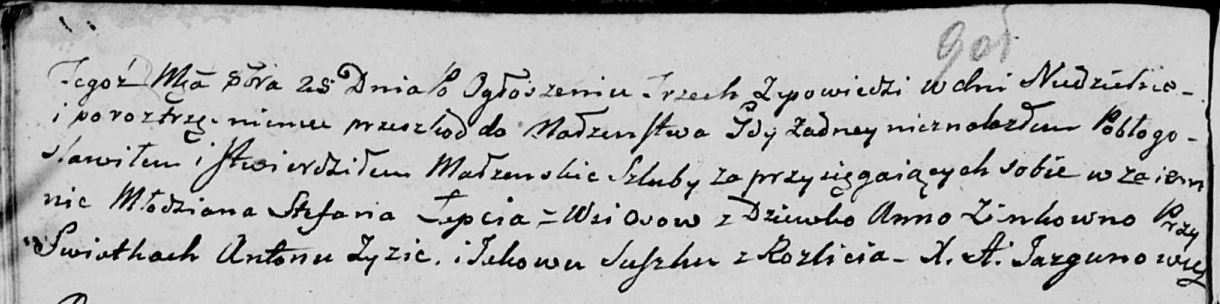 901
Tegoż Mca 8bra 28 Dnia Po Ogłoszeniu Trzech Zapowiedzi w dni Niedzielne
i po roztrzą-nieniu przeszkod do Małżenstwa Gdy żadney nieznalazłem Pobłogo-
sławiłem i stwierdziłem Małżenskie Szluby zaprzysięgaiących sobie wzaiem
nie Młodziana Stefana Łepcia z Wsi Osow z Dziewko Anno Zinkowno Przy
Swiatkach Antonu Zyzic. i Jakowu Suszku z Rozlicia - X. A. Jazgunowicz